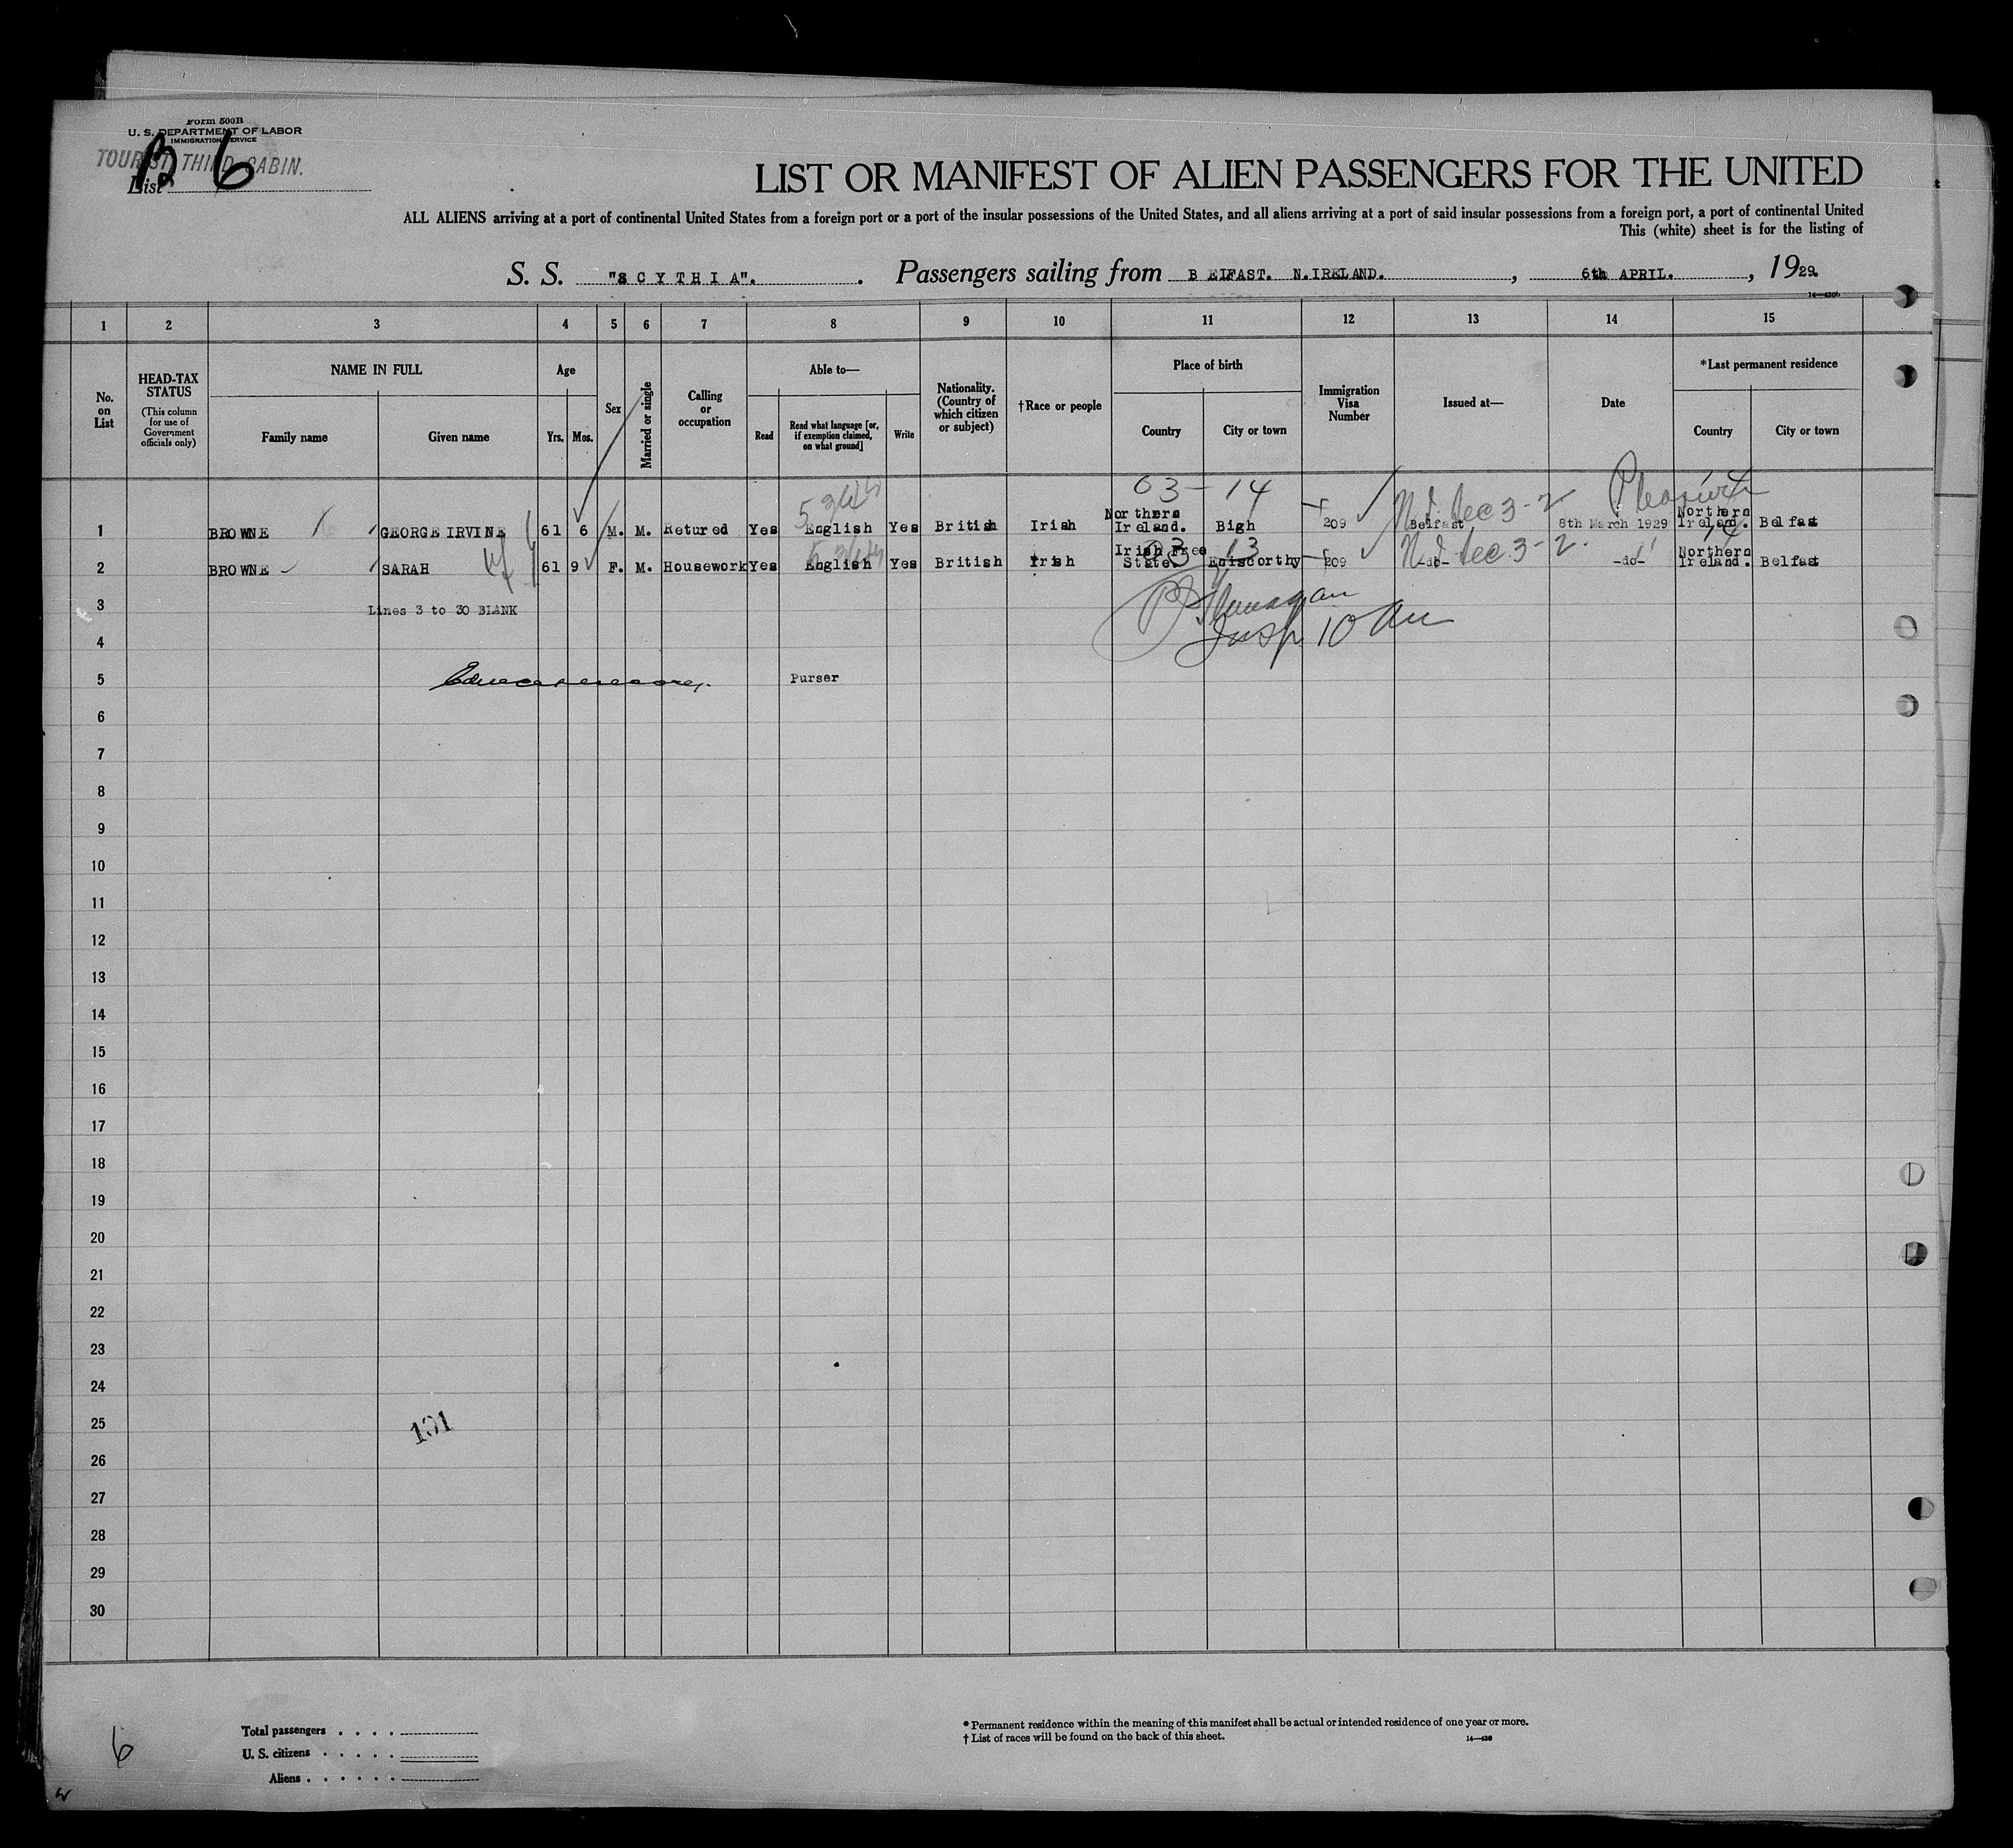 Form 500B
U. S. DEPARTMENT OF LABOR
IMMIGRATION SERVICE
TOURIST THIRD CABIN.
List B 6
LIST OR MANIFEST OF ALIEN PASSENGERS FOR THE UNITED
ALL ALIENS arriving at a port of continental United States from a foreign port or a port of the insular possessions of the United States, and all aliens arriving at a port of said insular possessions from a foreign port, a port of continental United
This (white) sheet is for the listing of
S. S. "SCYTHIA". Passengers sailing from BELFAST. N.IRELAND. , 6th APRIL. , 1929.
14—430b
1 2 3 4 5 6 7 8 9 10 11 12 13 14 15
No. on List
HEAD-TAX STATUS
(This column for use of Government officials only)
NAME IN FULL
Family name Given name
Age
Yrs. Mos.
Sex
Married or single
Calling or occupation
Able to—
Read
Read what language [or, if exemption claimed, on what ground]
Write
Nationality. (Country of which citizen or subject)
†Race or people
Place of birth
Country City or town
Immigration Visa Number
Issued at—
Date
*Last permanent residence
Country City or town
03-14 Pleasure 14
1 BROWNE GEORGE IRVINE 61 6 M. M. Retured Yes English Yes British Irish Northern Ireland. Bigh 209 Belfast 8th March 1929 Northern Ireland. Belfast
2 BROWNE SARAH 61 9 F. M. Housework Yes English Yes British Irish Irish Free State. Eniscorthy 209 -do- -do- Northern Ireland. Belfast
03 13
3 Lines 3 to 30 BLANK
4
Insp
5 Purser
6
7
8
9
10
11
12
13
14
15
16
17
18
19
20
21
22
23
24
25
101
26
27
28
29
30
6
Total passengers . . . .
U. S. citizens . . . . .
Aliens . . . . . .
* Permanent residence within the meaning of this manifest shall be actual or intended residence of one year or more.
† List of races will be found on the back of this sheet.
14—430